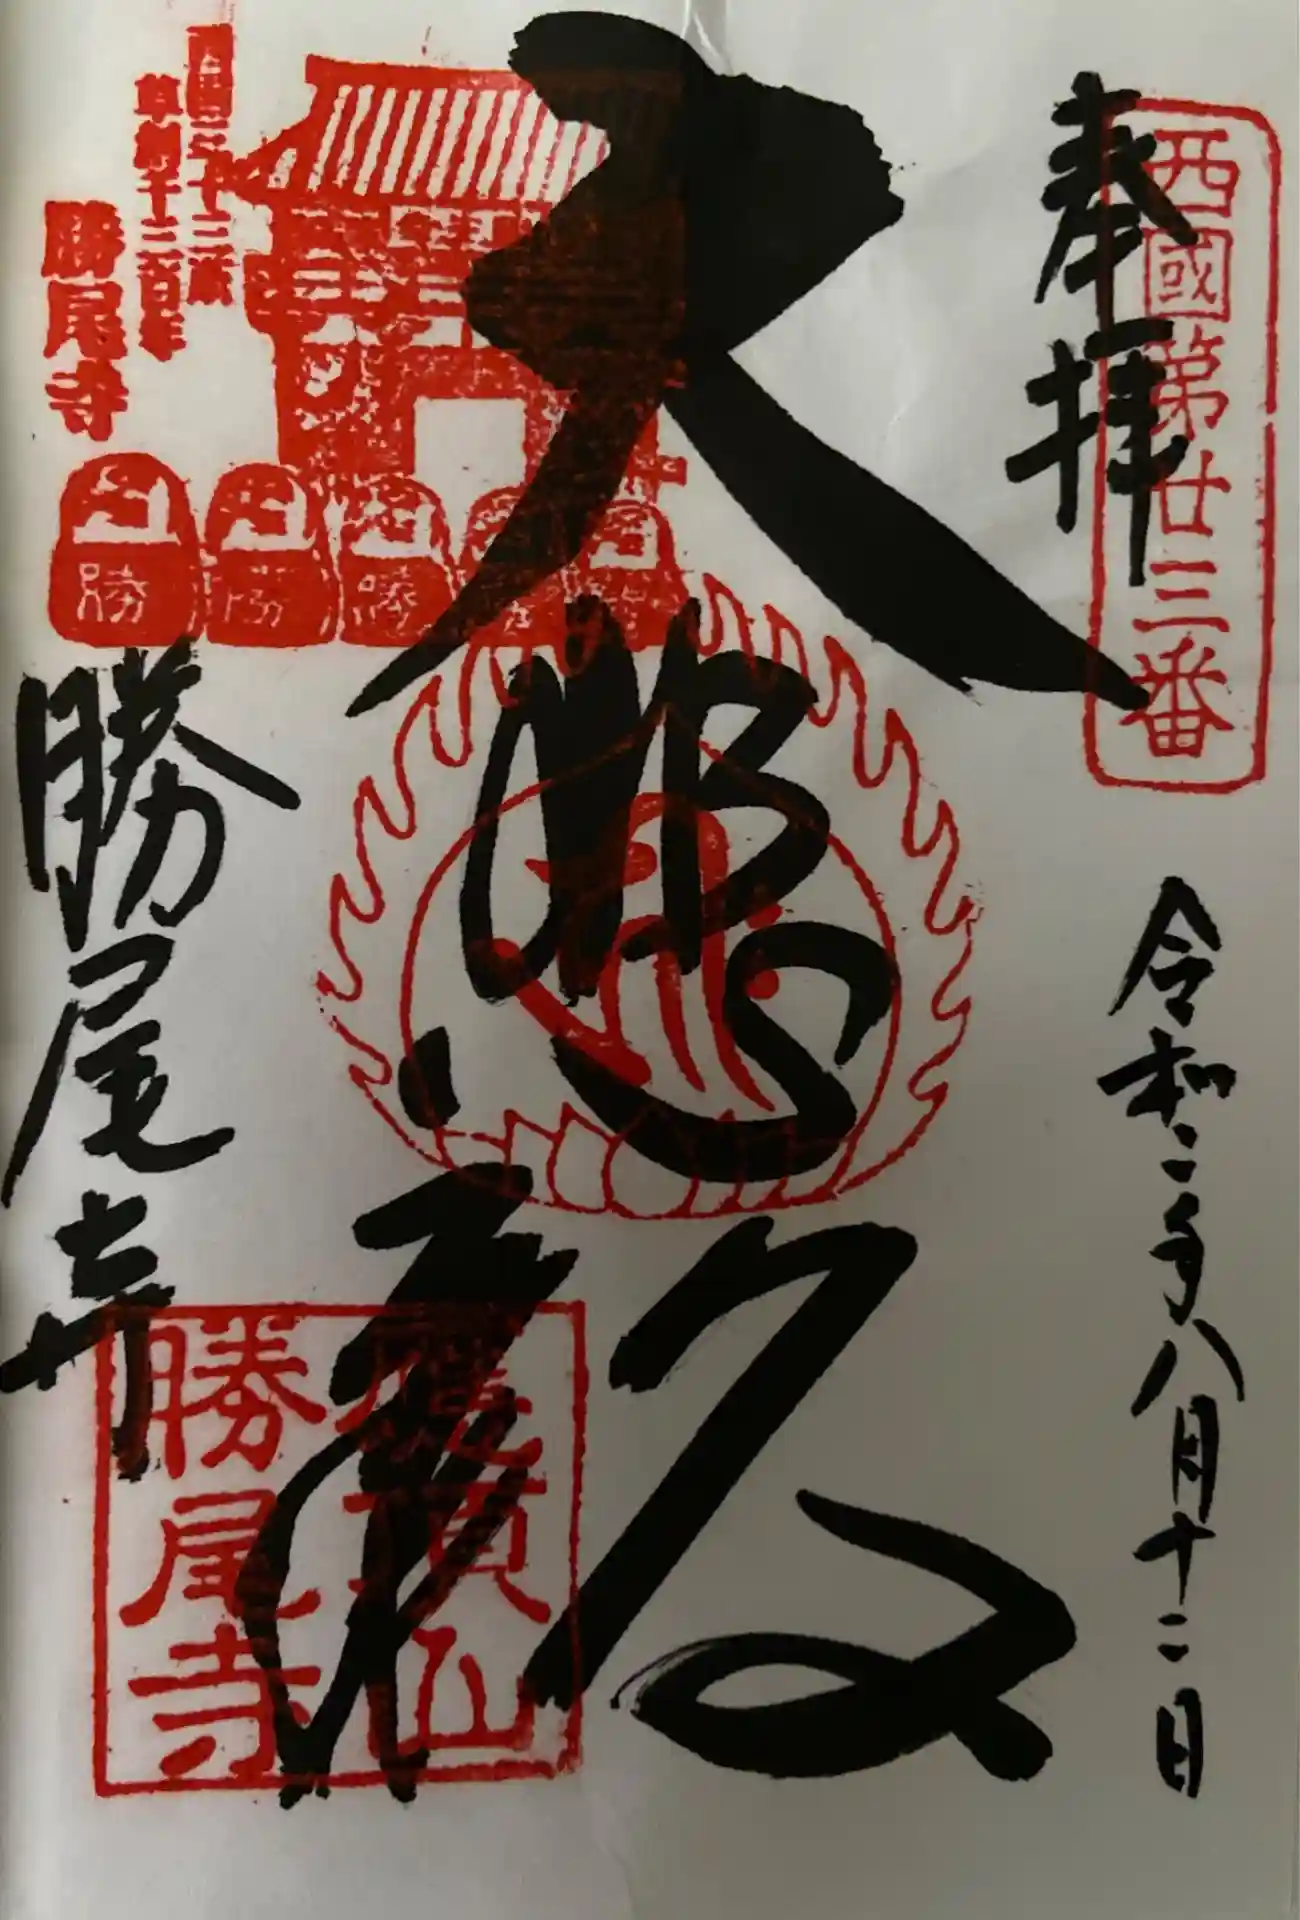 奉拝
西國第廿三番
令和二年八月十二日
大悲殿
開創千三百年
勝尾寺
勝
勝
勝
勝尾寺
應頂山
勝尾寺